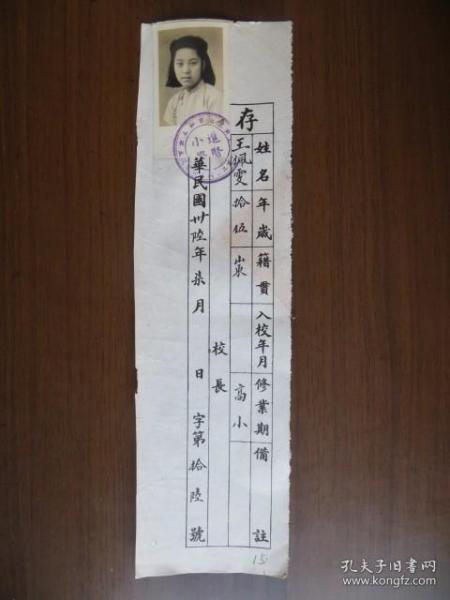 存
姓名 年歲 籍貫 入校年月 修業期 備註
王佩雯 拾伍 山東 高小
校長
華民國卅陸年柒月 日 字第拾陸號
小進
15
孔夫子旧书网
www.kongfz.com